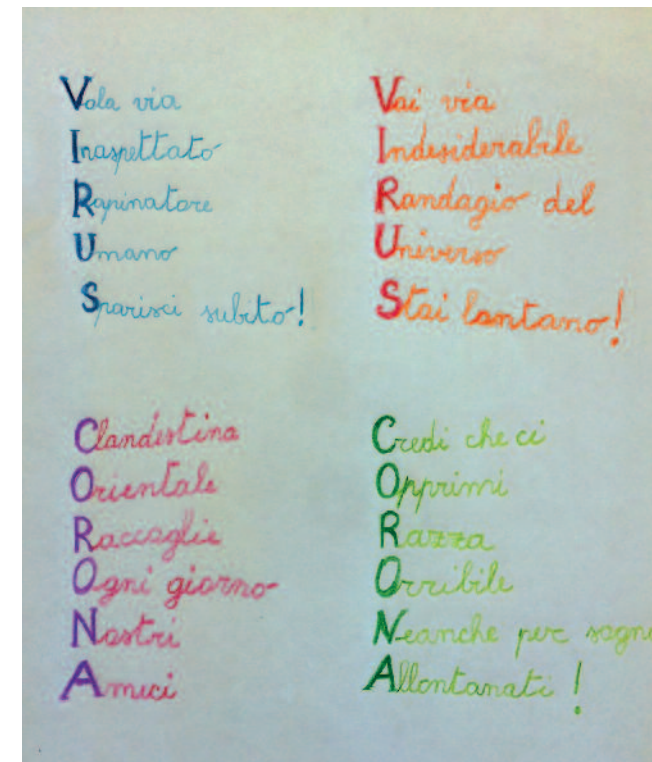 Vola via
Inaspettato
Rapinatore
Umano
Sparisci subito!
Vai via
Indesiderabile
Randagio del
Universo
Stai lontano!
Clandestina
Orientale
Raccoglie
Ogni giorno
Nostri
Amici
Credi che ci
Opprimi
Razza
Orribile
Neanche per sogn
Allontanati!